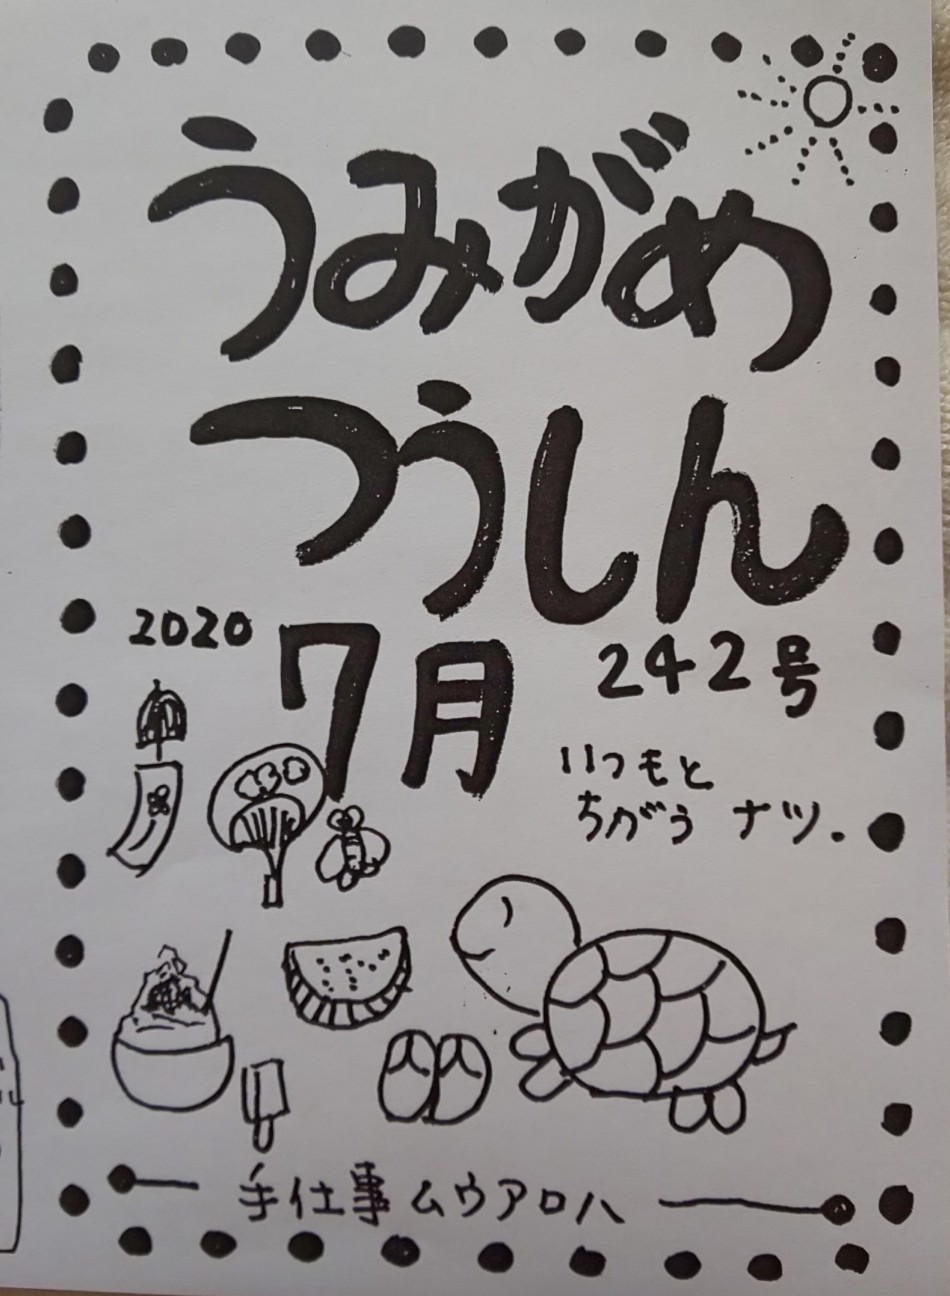 うみがめ
つうしん
2020 7月 242号
いつもと
ちがう ナツ.
手仕事 ムウアロハ